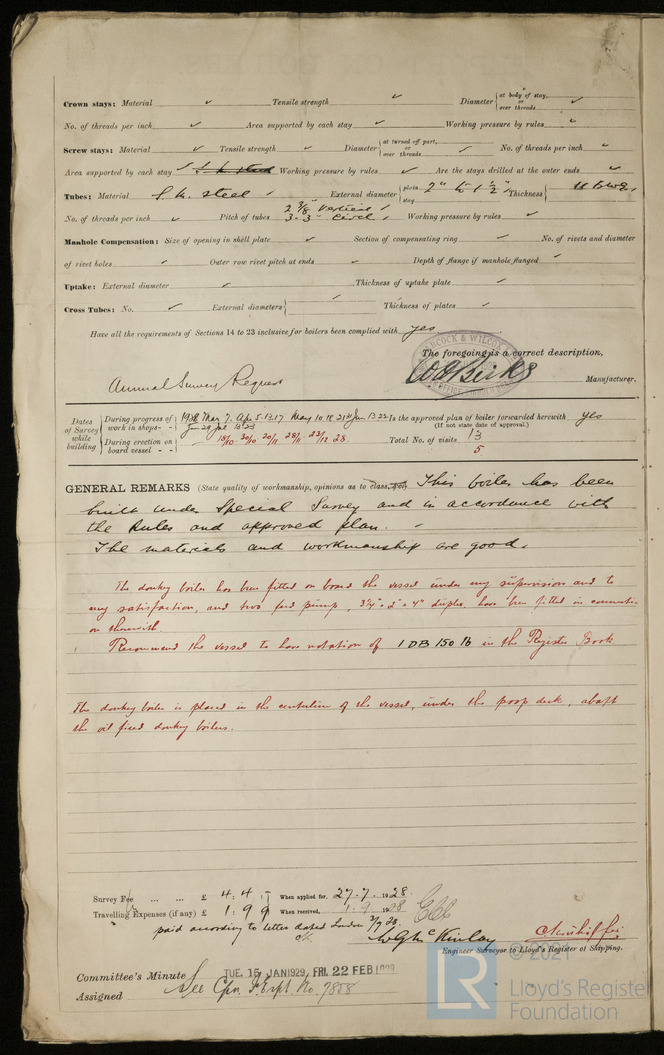 Crown stays: Material ✓ Tensile strength ✓ Diameter { at body of stay, or over threads ✓
No. of threads per inch ✓ Area supported by each stay ✓ Working pressure by rules ✓
Screw stays: Material ✓ Tensile strength ✓ Diameter { at turned off part, or over threads ✓ No. of threads per inch ✓
Area supported by each stay ✓ Working pressure by rules ✓ Are the stays drilled at the outer ends ✓
Tubes: Material S.M. Steel External diameter { plain 2" to 1 1/2" stay Thickness {
No. of threads per inch ✓ Pitch of tubes 2 3/8" Vertical 3-3" Circl. Working pressure by rules ✓
Manhole Compensation: Size of opening in shell plate ✓ Section of compensating ring ✓ No. of rivets and diameter
of rivet holes ✓ Outer row rivet pitch at ends ✓ Depth of flange if manhole flanged ✓
Uptake: External diameter ✓ Thickness of uptake plate ✓
Cross Tubes: No. ✓ External diameters { ✓ Thickness of plates ✓
Have all the requirements of Sections 14 to 23 inclusive for boilers been complied with yes
BABCOCK & WILCOX
The foregoing is a correct description,
Manufacturer.
Annual Survey Request
Dates of Survey while building
During progress of work in shops - - 1928 Mar 7. Apr. 5.13.17 May 10.18.21 Jun 13.22
Jun 29 Jul 13.23
During erection on board vessel - - 18/10 20/10 20/11 28/11 23/12 28.
Is the approved plan of boiler forwarded herewith yes
(If not state date of approval.)
Total No. of visits 13
5
GENERAL REMARKS (State quality of workmanship, opinions as to class, &c.) This boiler has been
built under Special Survey and in accordance with
the Rules and approved plan.
The materials and workmanship are good.
The donkey boiler has been fitted on board the vessel under my supervision and to
my satisfaction, and two feed pumps, 3 1/4" x 2" x 4" duplex, have been fitted in connecti-
on therewith.
Recommend the vessel to have notation of 1 DB 150 lb in the Register Book
The donkey boiler is placed in the centerline of the vessel, under the poop deck, abaft
the oil fired donkey boilers.
Survey Fee ... ... £ 4.4. When applied for, 27.7. 1928
Travelling Expenses (if any) £ 1.9 9 When received, 1.9. 1928
paid according to letter dated London 3/9 28.
Engineer Surveyor to Lloyd's Register of Shipping.
Committee's Minute TUE. 15 JAN 1929 FRI. 22 FEB 1929
Assigned See Rpt. No. 7858
© 2021
LR
Lloyd's Register
Foundation